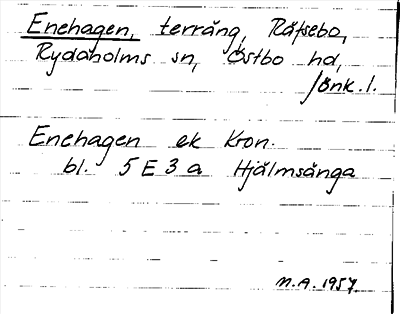 Enehagen, terräng, Råfsebo,
Rydaholms sn, Östbo hd,
Jönk. l.
Enehagen ek Kron.
bl. 5 E 3 a Hjälmsänga
M.A. 1957.